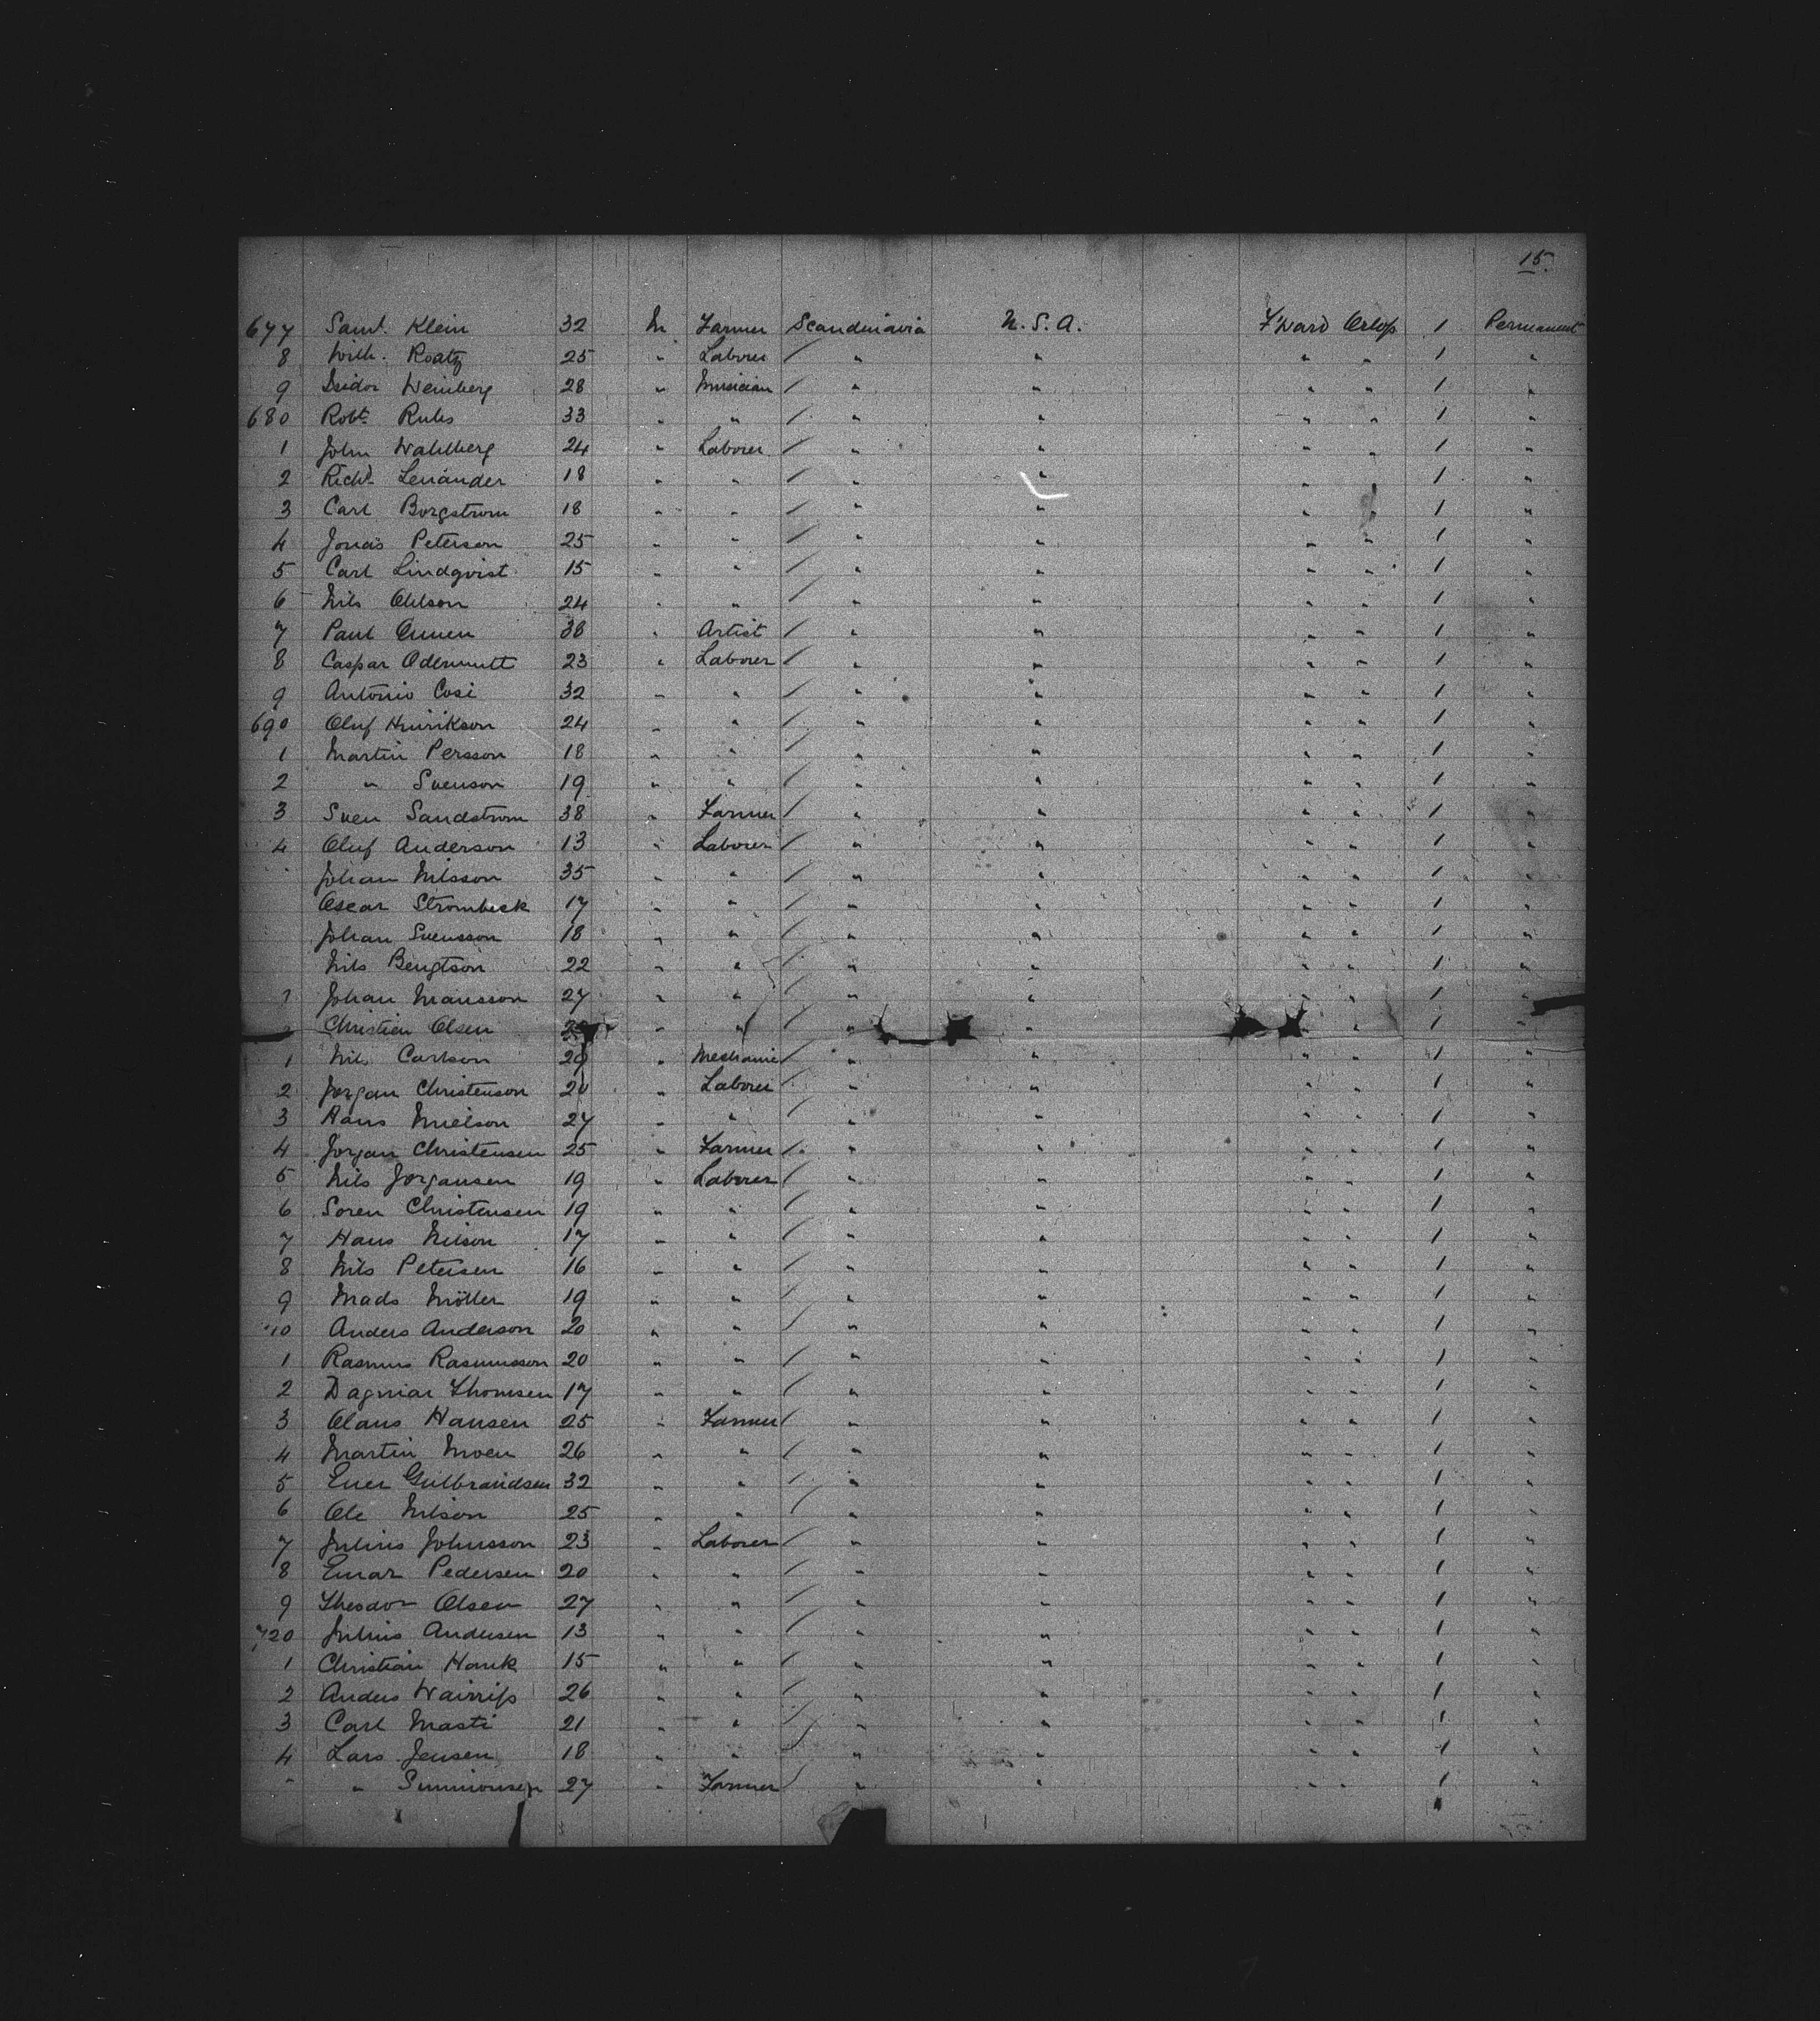 15.
677 Saml. Klein 32 M Farmer Scandinavia U.S.A. Fward Orlop 1 Permanent
8 Wilh. Roatz 25 " Laborer / " " " " 1 "
9 Isidor Weinberg 28 " Musician / " " " " 1 "
680 Robt. Rubs 33 " " / " " " " 1 "
1 John Wahlberg 24 " Laborer / " " " " 1 "
2 Richd. Lenander 18 " " / " " " 1 "
3 Carl Borgstrom 18 " " / " " " " 1 "
4 Jonas Peterson 25 " " / " " " " 1 "
5 Carl Lindqvist 15 " " / " " " " 1 "
6 Nils Ohlson 24 " " / " " " " 1 "
7 Paul 38 " Artist / " " " " 1 "
8 Caspar Odermutt 23 " Laborer / " " " " 1 "
9 Antonio Cosi 32 " " / " " " " 1 "
690 Oluf Hinrikson 24 " " / " " " " 1 "
1 Martin Persson 18 " " / " " " " 1 "
2 " Svenson 19 " " / " " " " 1 "
3 Sven Sandstrom 38 " Farmer / " " " " 1 "
4 Oluf Anderson 13 " Laborer / " " " " 1 "
Johan Nilsson 35 " " / " " " " 1 "
Oscar Strombeck 17 " " / " " " " 1 "
Johan Svensson 18 " " / " " " " 1 "
Nils Bengtson 22 " " / " " " " 1 "
Johan Mansson 27 " " / " " " " 1 "
Christian Olsen " " / " " " 1 "
1 Nils Carlson 29 " Mechanic / " " " " 1 "
2 Jorgan Christenson 20 " Laborer / " " " " 1 "
3 Hans 27 " " / " " " " 1 "
4 Jorgan Christensen 25 " Farmer / " " " " 1 "
5 Nils Jorgansen 19 " Laborer / " " " " 1 "
6 Soren Christensen 19 " " / " " " " 1 "
7 Hans Nilson 17 " " / " " " " 1 "
8 Nils Petersen 16 " " / " " " " 1 "
9 Mads Möller 19 " " / " " " " 1 "
10 Anders Anderson 20 " " / " " " " 1 "
1 Rasmus Rasmusson 20 " " / " " " " 1 "
2 Dagmar Thomsen 17 " " / " " " " 1 "
3 Claus Hansen 25 " Farmer / " " " " 1 "
4 Martin Moen 26 " " / " " " " 1 "
5 Ener Gulbrandsen 32 " " / " " " " 1 "
6 Ole Nilson 25 " " / " " " " 1 "
7 Julius Johnsson 23 " Laborer / " " " " 1 "
8 Einar Pedersen 20 " " / " " " " 1 "
9 Theodor Olsen 27 " " / " " " " 1 "
720 Julius Andersen 13 " " / " " " " 1 "
1 Christian Hauk 15 " " / " " " " 1 "
2 Anders 26 " " / " " " " 1 "
3 Carl Masti 21 " " / " " " " 1 "
4 Lars Jensen 18 " " / " " " " 1 "
" Simmonsen 27 " Farmer / " " " " 1 "